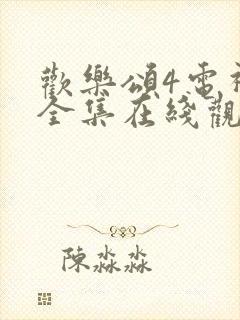 歡樂頌4電視
全集在綫觀
陳淼淼